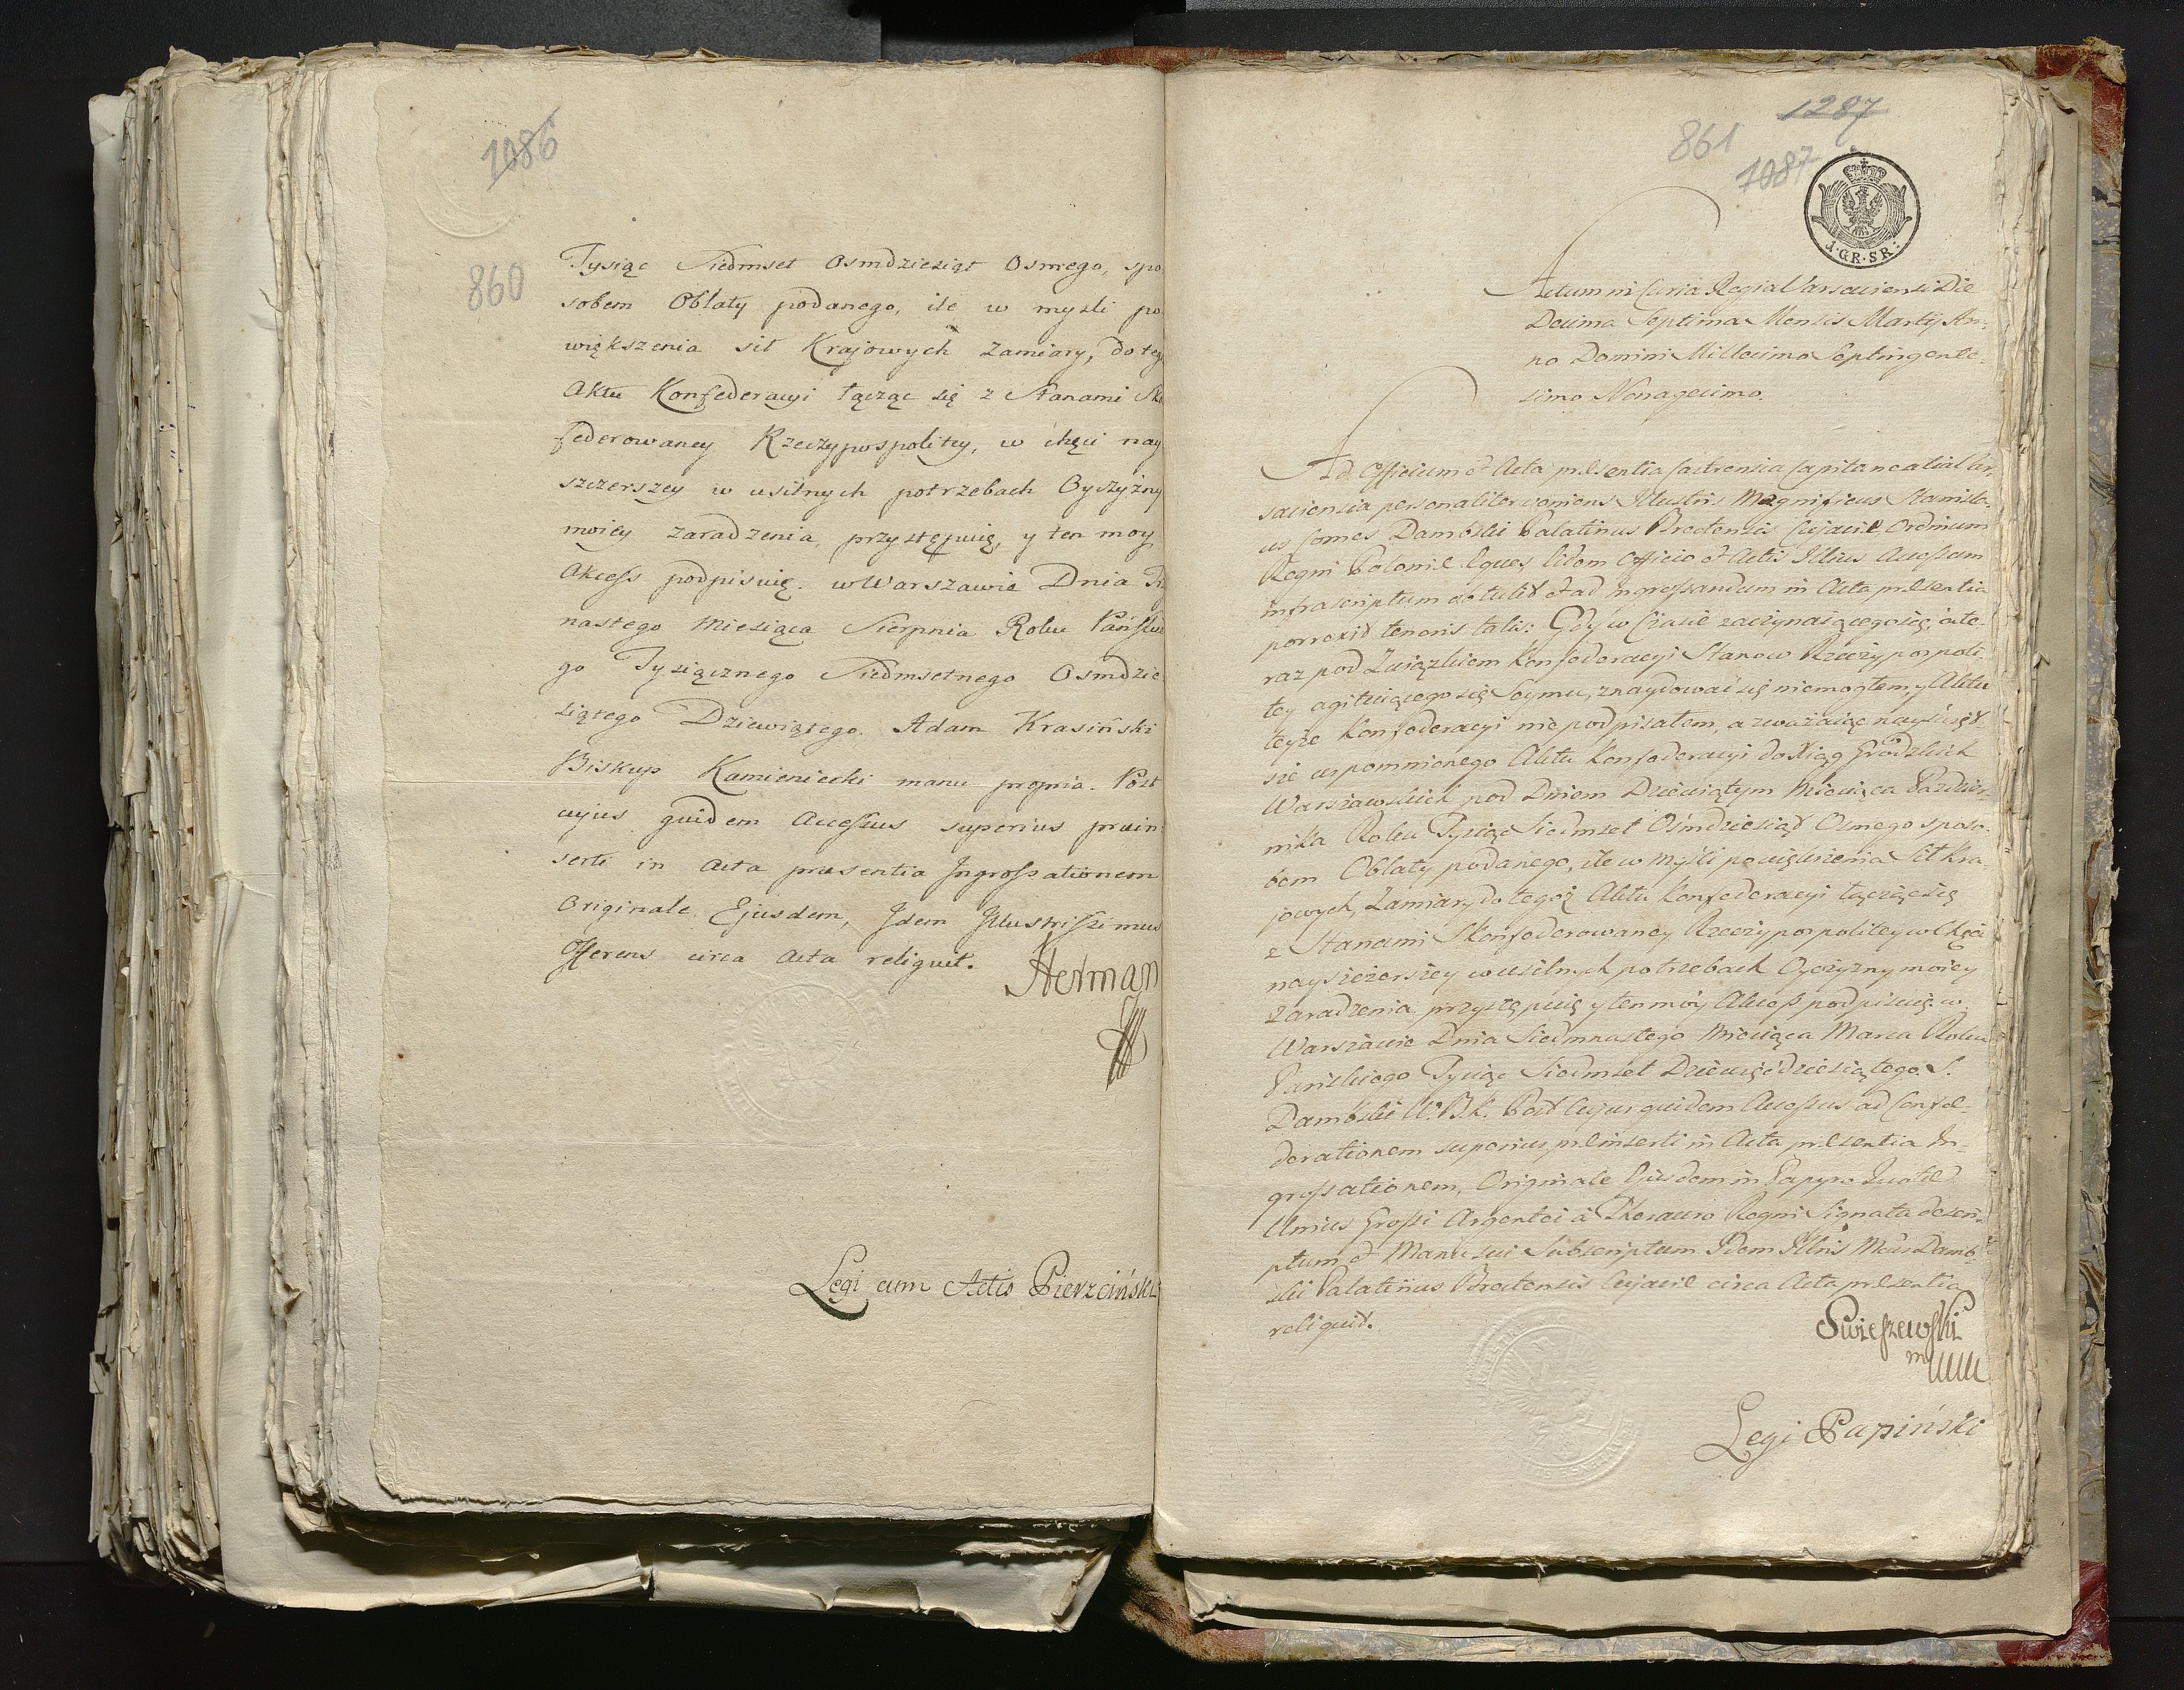 1086
860
Tysiąc Siedmset Osmdziesiąt Osmego, spo
sobem Oblaty podanego, ile w mysli po
większenia sił Krajowych zamiary, do teg
Aktu Konfederacyi łącząc się z Stanami Sko
federowaney Rzeczypospolitey, w chęci nay
szczerszey w usilnych potrzebach Oyczyzny
moiey zaradzenia, przystępuię, y ten moy
Akcess podpisuię. w Warszawie Dnia
nastego Miesiąca Sierpnia Roku Pańskie
go Tysiącznego Siedmsetnego Osmdzie
siątego Dziewiątego. Adam Krasiński
Biskup Kamieniecki manu propria. Post
cujus quidem Accessus superius præin
serti in Acta præsentia Ingrossationem
Originale Ejusdem, Idem Illustrissimus
Offerens circa Acta reliquit.
Herman
Legi cum Actis Pierzciński
1287
861
1087
1·GR·SR:
Actum in Curia Regia Varsaviensi Die
Decima Septima Mensis Martij An-
no Domini Millesimo Septingente-
simo Nonagesimo.
Ad Officium et Acta præsentia Castrensia Capitanealia Var-
saviensia personaliter veniens Illustris Magnificus Stanisla-
us Comes Dambski Palatinus Brestensis Cujaviæ Ordinum
Regni Poloniæ Eques Eidem Officio et Actis Illius Accessum
infrascriptum obtulit et ad ingrossandum in Acta præsentia
porrexit tenoris talis: Gdy w Czasie zaczynaiącego się, a te-
raz pod Związkiem Konfederacyi Stanow Rzeczypospoli-
tey agituiącego się Seymu, znaydować się niemogłem, y Aktu
teyże Konfederacyi nie podpisałem, a zważaiąc
się wspomnionego Aktu Konfederacyi do Xiąg Grodzkich
Warszawskich pod Dniem Dziewiątym Miesiąca Paździer-
nika Roku Tysiąc Siedmset Ośmdziesiąt Osmego sposo-
bem Oblaty podanego, ile w myśli powiększenia Sił Kra-
jowych, Zamiary do tegoż Aktu Konfederacyi łącząc się
z Stanami Skonfederowaney Rzeczypospolitey w Chęci
nayszczerszey w usilnych potrzebach Oyczyzny moiey
zaradzenia, przystępuię y ten móy Akcess podpisuię w
Warszawie Dnia Siedmnastego Miesiąca Marca Roku
Pańskiego Tysiąc Siedmset Dziewięćdziesiątego. S.
Dambski W. B. K. Post Cujus quidem Accessus ad Confoe-
derationem superius præinserti in Acta præsentia In-
grossationem, Originale Ejusdem in Papyro
Unius Grossi Argentei à Thesauro Regni Signata descri-
ptum et Manu sui Subscriptum Idem Illris Mcus Damb-
ski Palatinus Brestensis Cujaviæ circa Acta præsentia
reliquit.
Swieszewski
Legi Papiński